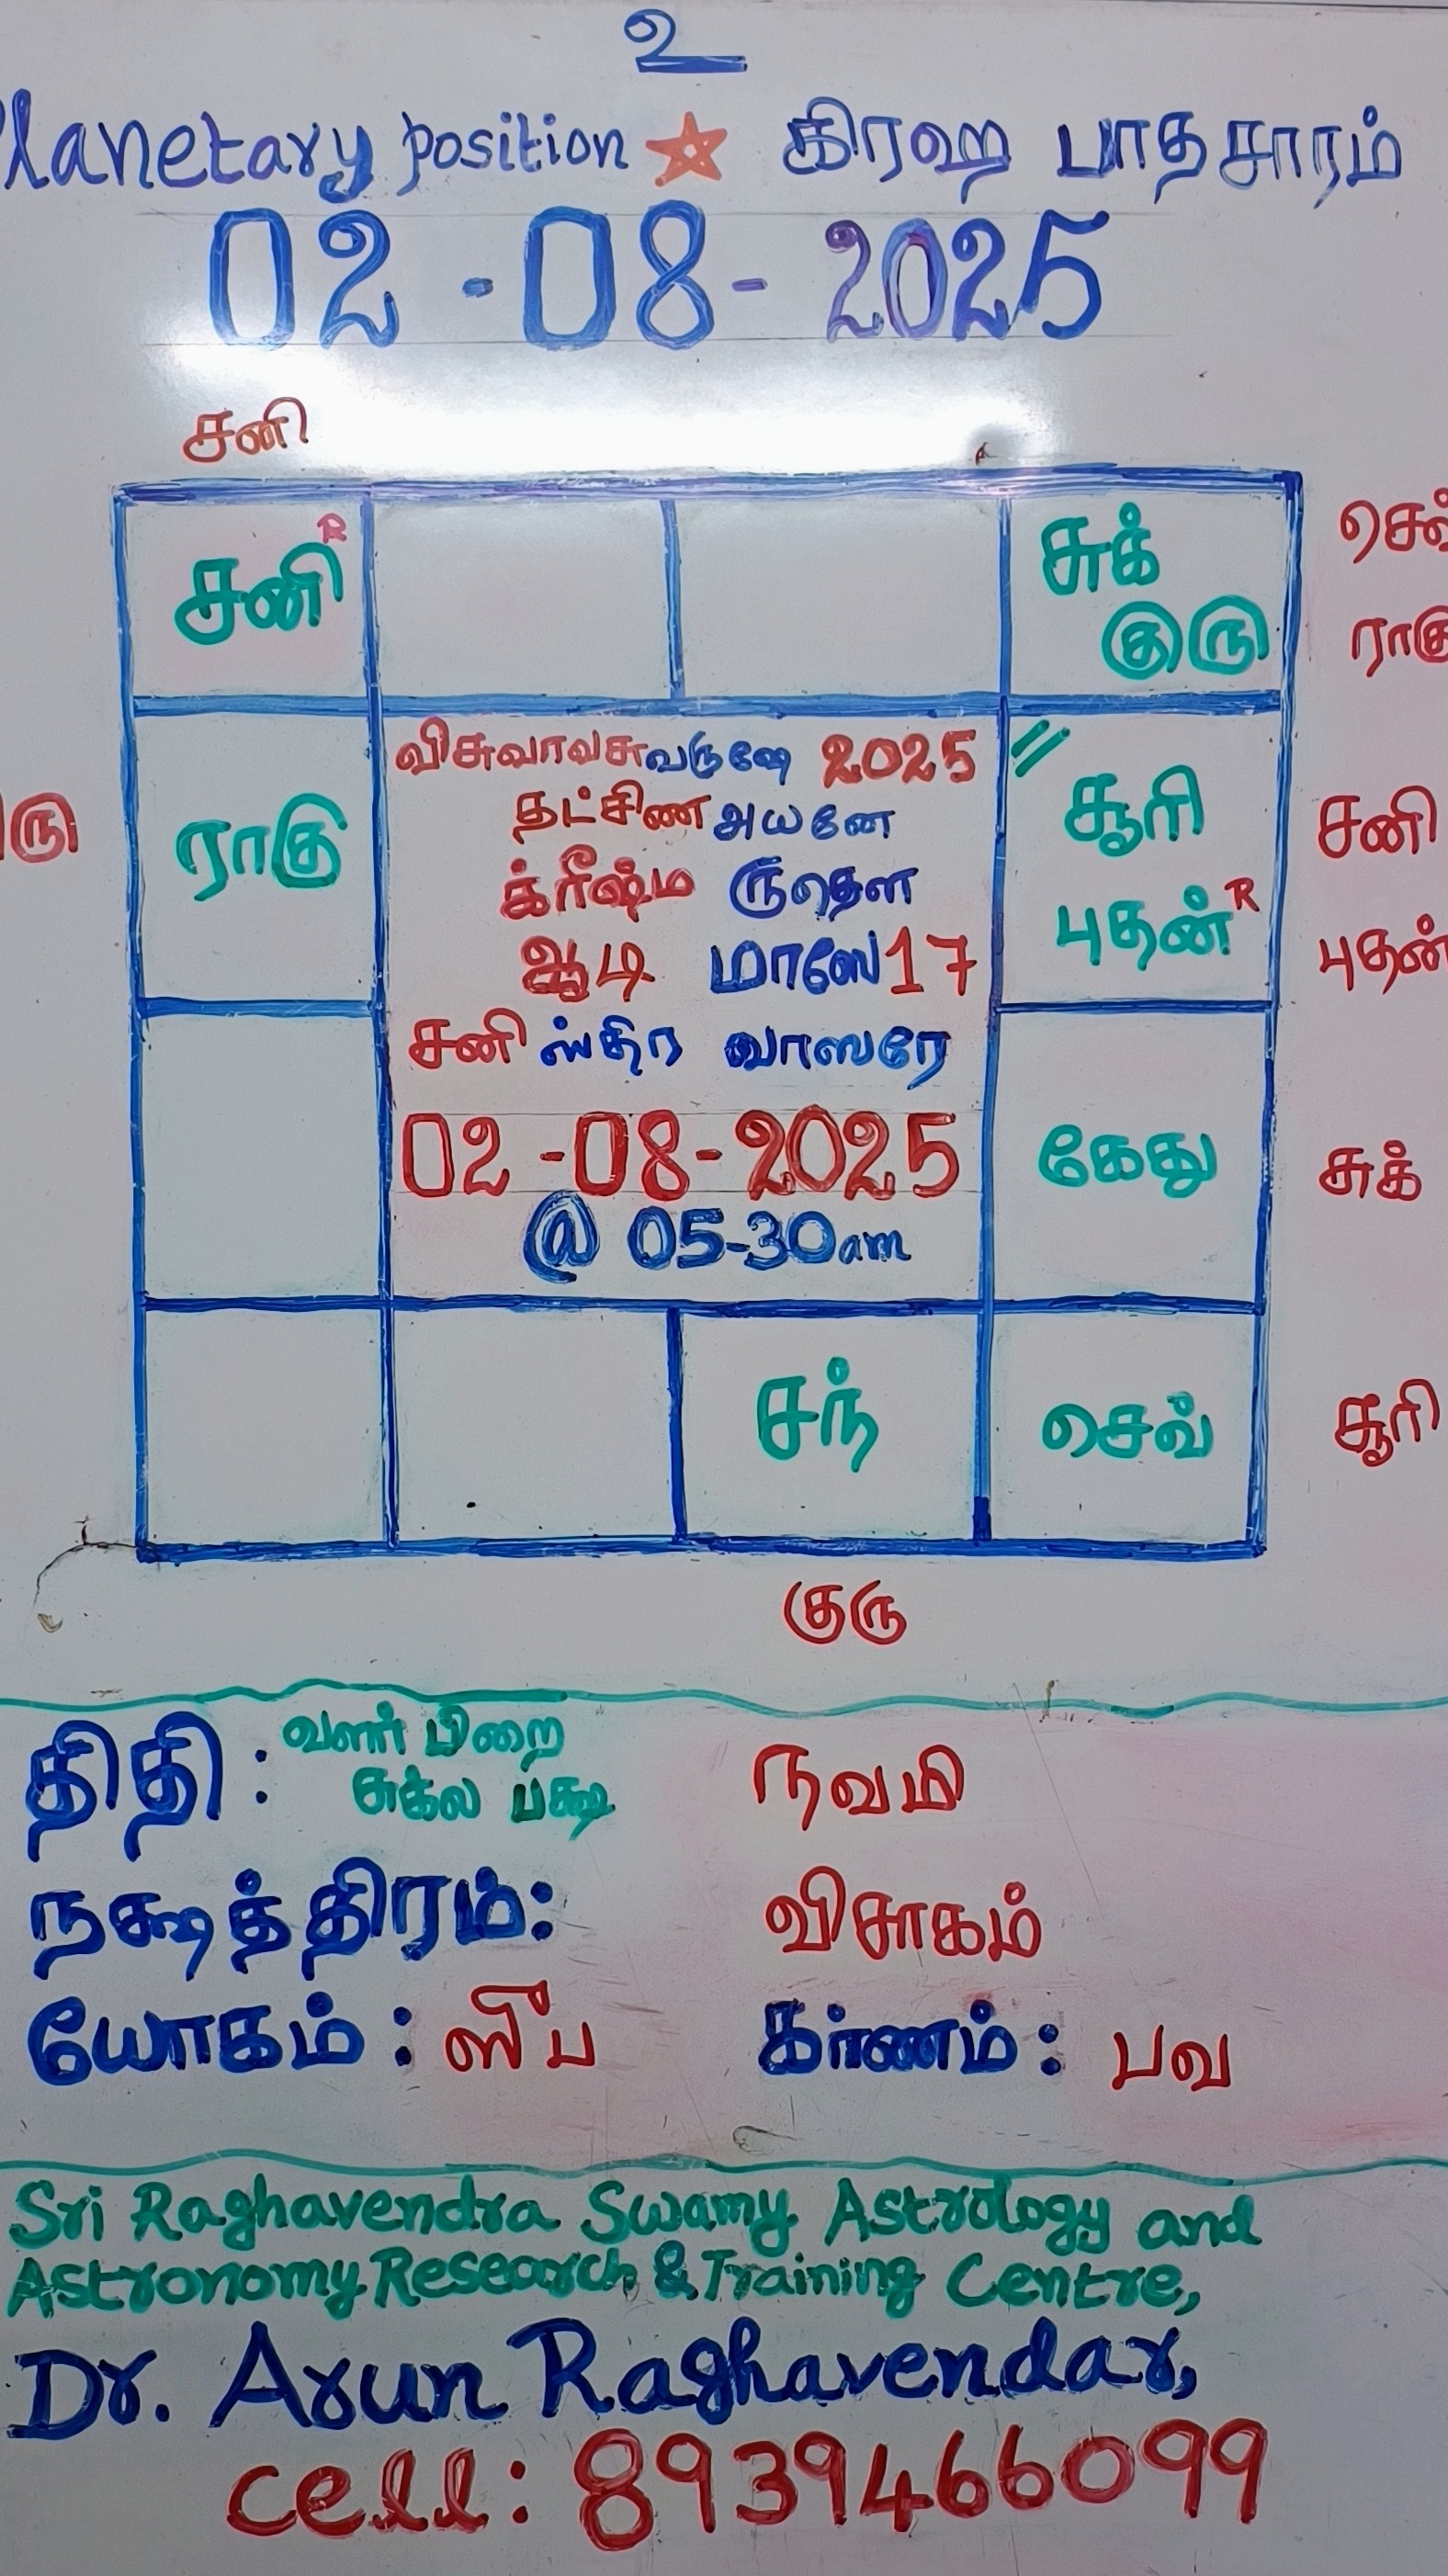 உ
Planetary position ☆ கிரஹ பாதசாரம்
02-08-2025
சனி
சனி R
சுக்
குரு
செவ்
ராகு
விசுவாவசுவருஷே 2025
தட்சிண அயனே
க்ரீஷ்ம ருதௌ
ஆடி மாஸே 17
சனி ஸ்திர வாஸரே
02-08-2025
@ 05-30am
ராகு
சூரி
புதன் R
சனி
புதன்
கேது
சுக்
சந்
செவ்
சூரி
குரு
திதி : வளர் பிறை
சுக்ல பக்ஷ நவமி
நக்ஷத்திரம்: விசாகம்
யோகம் : ஸுப கர்ணம் : பவ
Sri Raghavendra Swamy Astrology and
Astronomy Research & Training Centre,
Dr. Arun Raghavendar,
cell: 8939466099